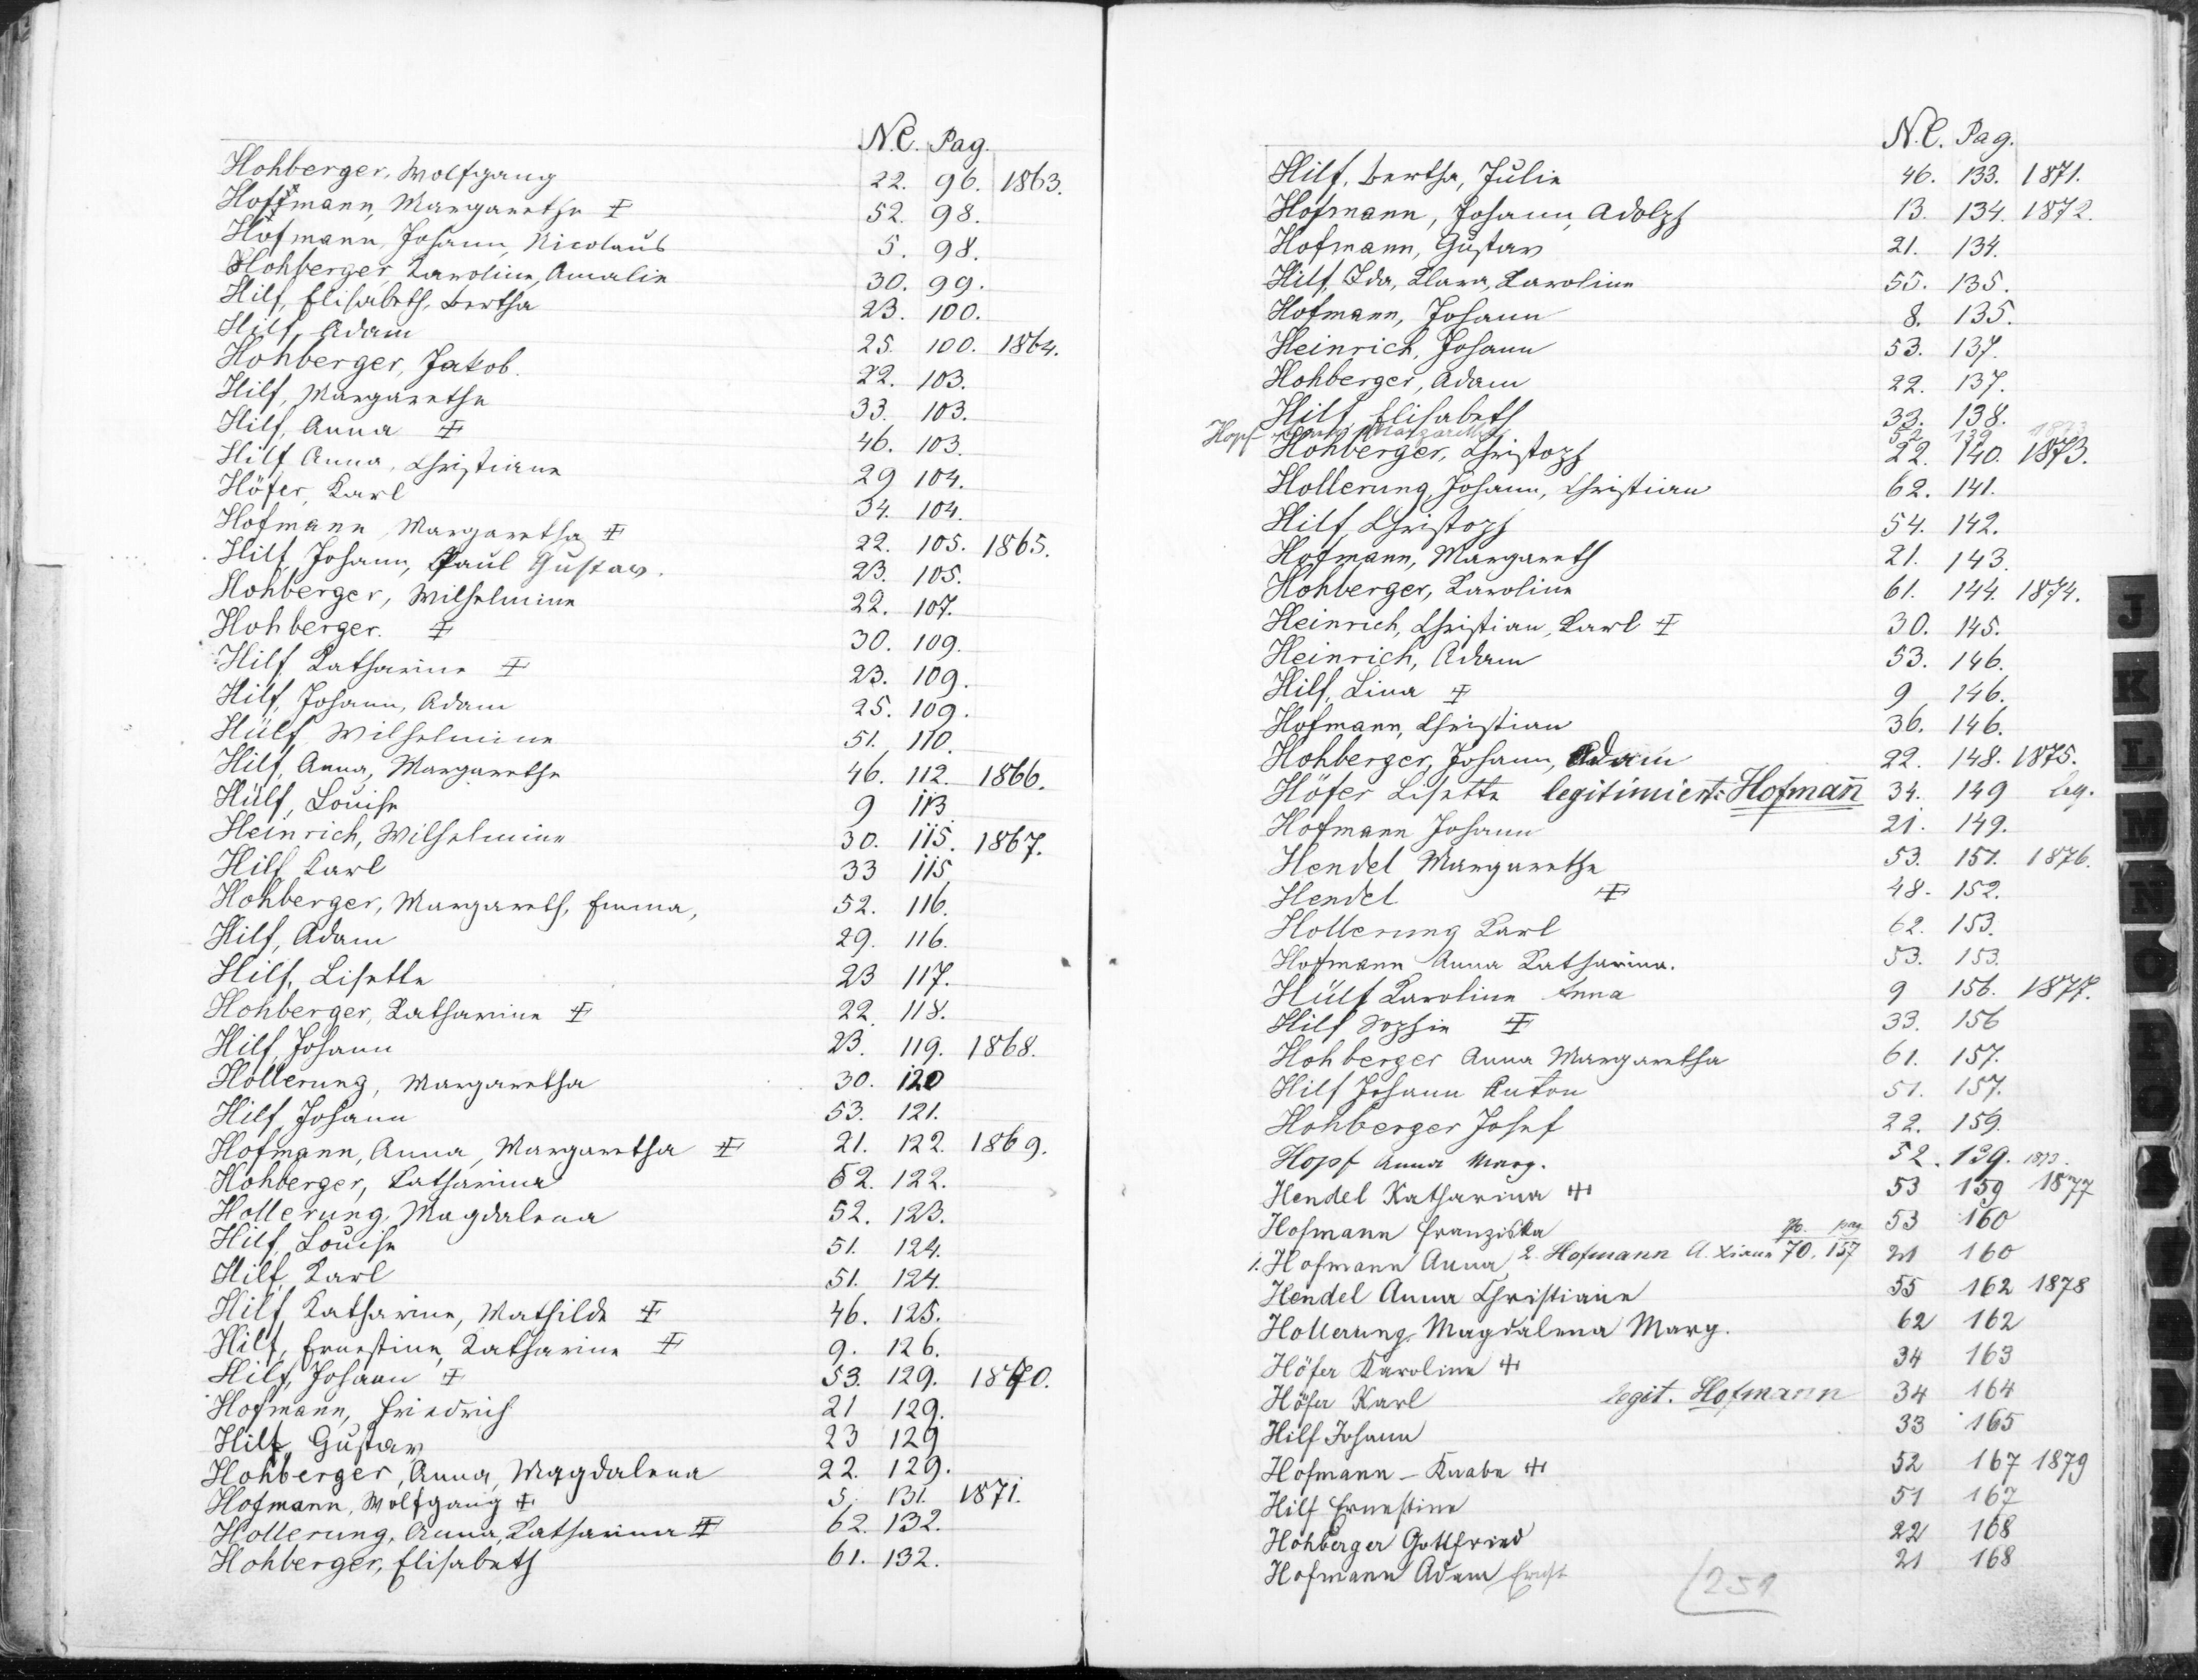 N.C. Pag.
Hohberger, Wolfgang 22. 96. 1863.
Hoffmann, Margaretha ‡ 52. 98.
Hofmann, Johann, Nicolaus 5. 98.
Hohberger, Karoline, Amalie 30. 99.
Hilf, Elisabeth, Bertha 23. 100.
Hilf, Adam 25. 100. 1864.
Hohberger, Jakob. 22. 103.
Hilf, Margaretha 33. 103.
Hilf, Anna ‡ 46. 103.
Hilf, Anna, Christiane 29 104.
Höfer, Karl 34. 104.
Hofmann, Margaretha ‡ 22. 105. 1865.
Hilf, Johann, Paul Gustav. 23. 105.
Hohberger, Wilhelmine 22. 107.
Hohberger. ‡ 30. 109.
Hilf, Katharine ‡ 23. 109.
Hilf, Johann, Adam 25. 109.
Hülf, Wilhelmine 51. 110.
Hilf, Anna, Margaretha 46. 112. 1866.
Hülf, Louise 9 113.
Heinrich, Wilhelmine 30. 115. 1867.
Hilf, Karl 33 115
Hohberger, Margareth, Emma, 52. 116.
Hilf, Adam 29. 116.
Hilf, Lisette 23 117.
Hohberger, Katharine ‡ 22. 118.
Hilf, Johann 23. 119. 1868.
Hollerung, Margaretha 30. 120
Hilf, Johann 53. 121.
Hofmann, Anna, Margaretha ‡ 21. 122. 1869.
Hohberger, Katharina 62. 122.
Hollerung, Magdalena 52. 123.
Hilf, Louise 51. 124.
Hilf, Karl 51. 124.
Hilf, Katharine, Mathilde ‡ 46. 125.
Hilf, Ernestine, Katharine ‡ 9. 126.
Hilf, Johann ‡ 53. 129. 1870.
Hofmann, Friedrich 21 129.
Hilf, Gustav 23 129
Hohberger, Anna, Magdalena 22. 129.
Hofmann, Wolfgang ‡ 5. 131. 1871.
Hollerung, Anna, Katharina ‡ 62. 132.
Hohberger, Elisabeth 61. 132.
N.C. Pag.
Hilf, Bertha, Julie 46. 133. 1871.
Hofmann, Johann, Adolph 13. 134. 1872.
Hofmann, Gustav 21. 134.
Hilf, Ida, Klara, Karoline 55. 135.
Hofmann, Johann 8. 135.
Heinrich, Johann 53. 137.
Hohberger, Adam 22. 137.
Hilf, Elisabeth 33. 138.
Hopf Margaretha 52 139 1873
Hohberger, Christoph 22. 140. 1873.
Hollerung, Johann, Christian 62. 141.
Hilf, Christoph 54. 142.
Hofmann, Margareth 21. 143.
Hohberger, Karoline 61. 144. 1874.
Heinrich, Christian, Karl ‡ 30. 145.
Heinrich, Adam 53. 146.
Hilf, Lina ‡ 9 146.
Hofmann, Christian 36. 146.
Hohberger, Johann, Adam 22. 148. 1875.
Höfer Lisette legitimiert: Hofmañ 34. 149 leg.
Hofmann Johann 21. 149.
Hendel Margaretha 53. 151. 1876.
Hendel ‡ 48. 152.
Hollerung Karl 62. 153.
Hofmann Anna Katharina. 53. 153.
Hülf Karoline Anna 9 156. 1877.
Hilf Sophie ‡ 33. 156
Hohberger Anna Margaretha 61. 157.
Hilf Johann Anton 51. 157.
Hohberger Josef 22. 159.
Hopf Anna Marg. 52. 139. 1873.
Hendel Katharina ‡ 53 159 1877
Hofmann Franziska 53 160
1. Hofmann Anna 2. Hofmann A. Xiane 70. pag 157 21 160
Hendel Anna Christiane 55 162 1878
Hollerung Magdalena Marg. 62 162
Höfer Karolina ‡ 34 163
Höfer Karl legit. Hofmann 34 164
Hilf Johann 33 165
Hofmann - Knabe ‡ 52 167 1879
Hilf Ernestine 51 167
Hohberger Gottfried 22 168
Hofmann Adam Ernst 21 168
251
J
K
L
M
N
O
P
Q